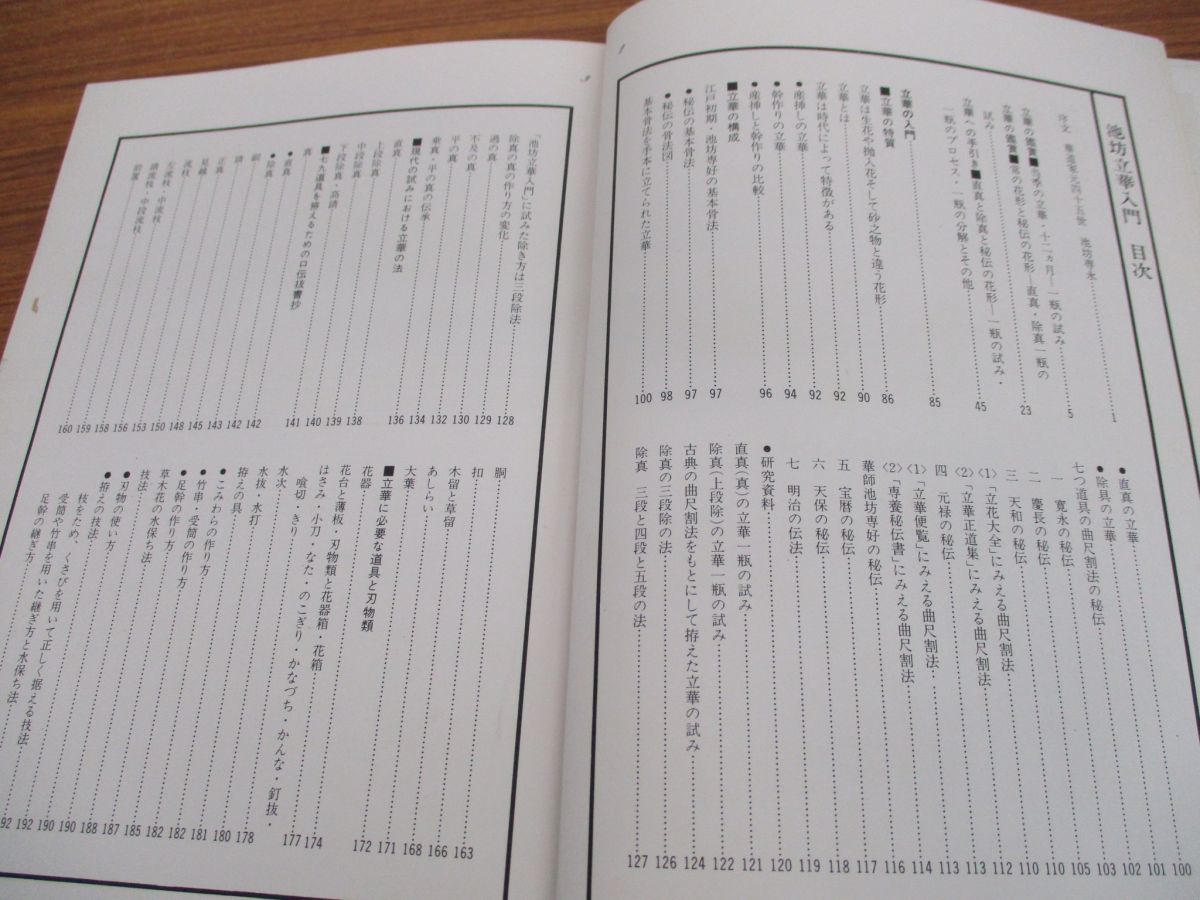 池坊立華入門 目次
序文 華道家元四十五世 池坊専永……1
立華の鑑賞■四季の立華・十二ヵ月―一瓶の試み……5
立華の鑑賞■常の花形と秘伝の花形―直真・除真一瓶の
試み……23
立華への手引き■直真と除真と秘伝の花形―一瓶の試み・
一瓶のプロセス・一瓶の分解とその他……45
立華の入門……85
■立華の特質……86
立華は生花や抛入花そして砂之物と違う花形……90
立華とは……92
立華は時代によって特徴がある……92
●産挿しの立華……94
●幹作りの立華……96
●産挿しと幹作りの比較
■立華の構成……97
江戸初期・池坊専好の基本骨法……97
●秘伝の基本骨法……98
●秘伝の骨法図
基本骨法を手本に立てられた立華……100
●直真の立華……100
●除真の立華……101
七つ道具の曲尺割法の秘伝……102
一 寛永の秘伝……103
二 慶長の秘伝……105
三 天和の秘伝……110
〈1〉「立花大全」にみえる曲尺割法……110
〈2〉「立華正道集」にみえる曲尺割法……112
四 元禄の秘伝……113
〈1〉「立華便覧」にみえる曲尺割法……113
〈2〉「専養秘伝書」にみえる曲尺割法……114
華師池坊専好の秘伝……117
五 宝暦の秘伝……118
六 天保の秘伝……119
七 明治の伝法……120
●研究資料
直真(真)の立華一瓶の試み……121
除真(上段除)の立華一瓶の試み……122
古典の曲尺割法をもとにして拵えた立華の試み……124
除真の三段除の法……126
除真 三段と四段と五段の法……127
「池坊立華入門」に試みた除き方は三段除法……128
除真の真の作り方の変化……129
過の真……130
不及の真……132
平の真……134
垂真・平の真の伝承
■現代の試みにおける立華の法……136
直真
上段除真……138
中段除真……139
下段除真 高請……140
■七九道具を拵えるための口伝抜書抄……141
真
●直真……142
●除真……142
副……143
請……145
正真……148
見越……150
流枝……153
左流枝・中流枝……156
請流枝・中段流枝……158
前置……159
……160
胴……163
扣……166
木留と草留……168
あしらい
大葉……171
■立華に必要な道具と刃物類……172
花器
花台と薄板 刃物類と花器箱・花箱……174
はさみ・小刀・なた・のこぎり・かなづち・かんな・釘抜・
喰切・きり……177
水次……178
水抜・水打……180
拵えの具
●こみわらの作り方……181
●竹串・受筒の作り方……182
●足幹の作り方……182
草木花の水保ち法……185
技法……187
●刃物の使い方……188
●拵えの技法……190
枝をため、くさびを用いて正しく据える技法……190
受筒や竹串を用いた継ぎ方と水保ち法……192
足幹の継ぎ方……92